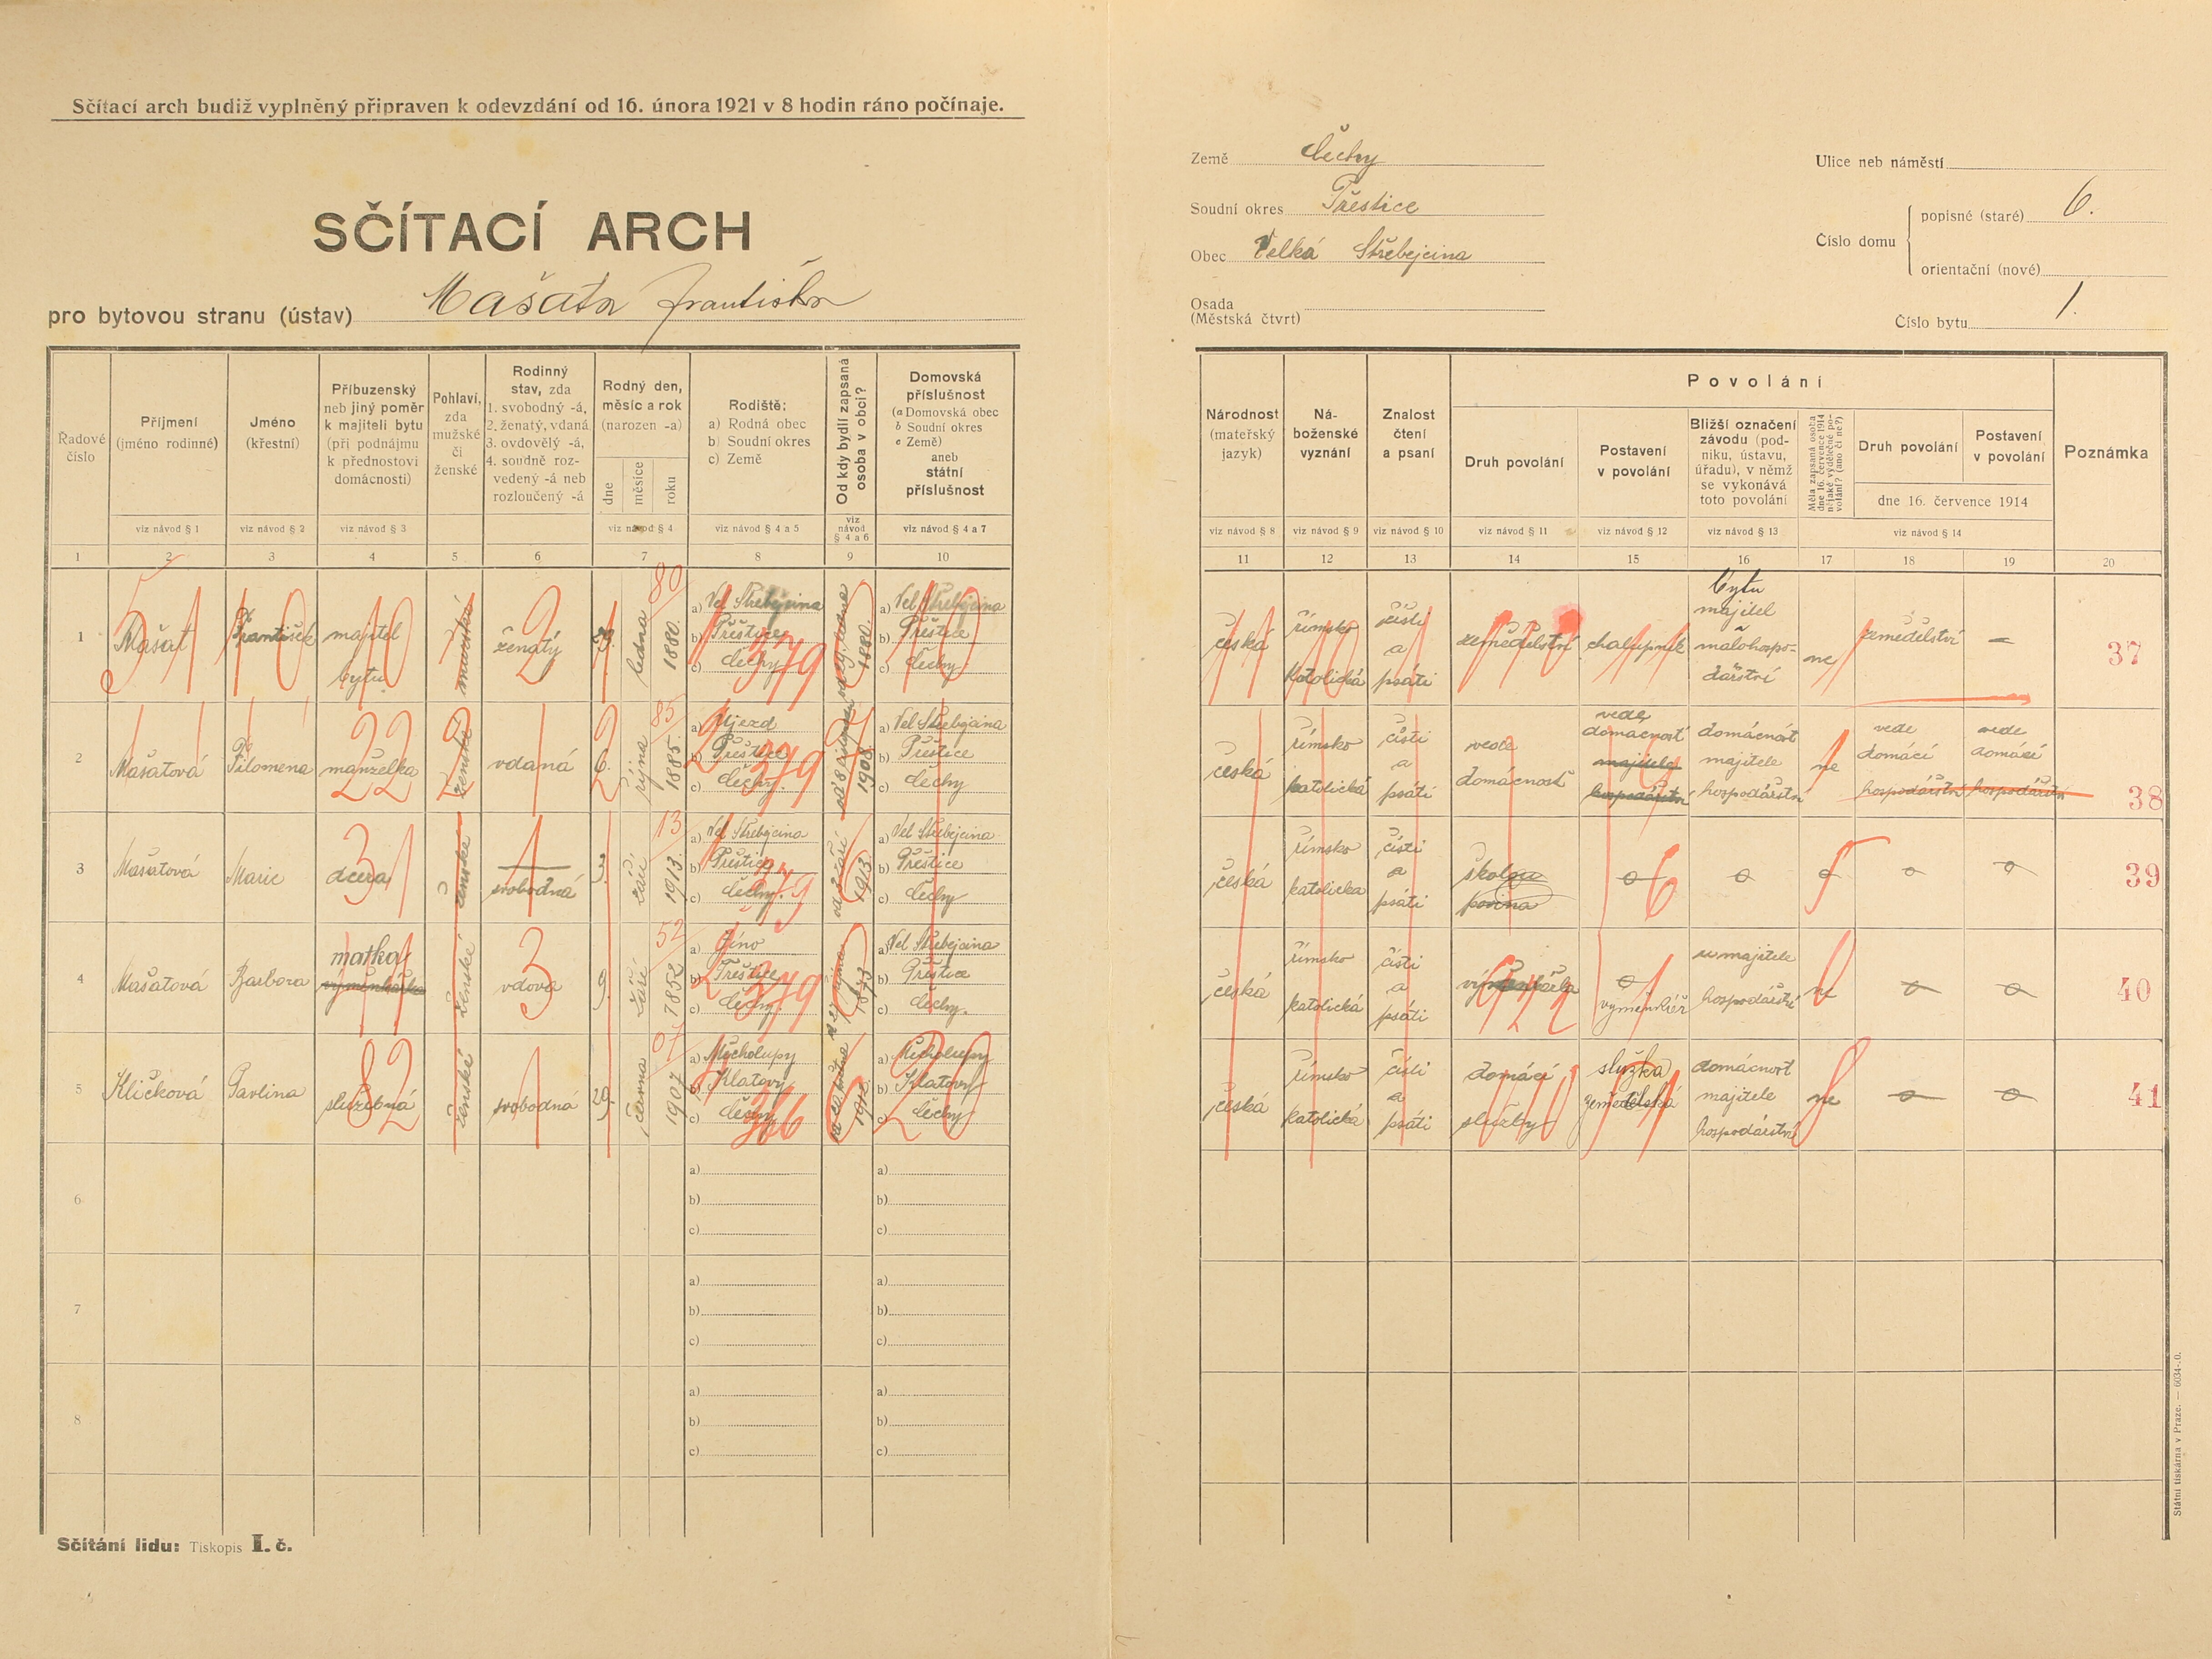 Sčítací arch budiž vyplněný připraven k odevzdání od 16. února 1921 v 8 hodin ráno počínaje.
SČÍTACÍ ARCH
pro bytovou stranu (ústav) Mašata Františka
Země Čechy
Soudní okres Přestice
Obec Velká Střebejcina
Osada
(Městská čtvrt)
Ulice neb náměstí
Číslo domu
popisné (staré) 6.
orientační (nové)
Číslo bytu 1.
Řadové
číslo
Příjmení
(jméno rodinné)
Jméno
(křestní)
Příbuzenský
neb jiný poměr
k majiteli bytu
(při podnájmu
k přednostovi
domácnosti)
Pohlaví,
zda
mužské
či
ženské
Rodinný
stav, zda
1. svobodný -á,
2. ženatý, vdaná
3. ovdovělý -á,
4. soudně roz-
vedený -á neb
rozloučený -á
Rodný den,
měsíc a rok
(narozen -a)
dne
měsíce
roku
Rodiště:
a) Rodná obec
b) Soudní okres
c) Země
Od kdy bydlí zapsaná
osoba v obci?
Domovská
příslušnost
(a Domovská obec
b Soudní okres
c Země)
aneb
státní
příslušnost
viz návod § 1
viz návod § 2
viz návod § 3
viz návod § 4
viz návod § 4 a 5
viz
návod
§ 4 a 6
viz návod § 4 a 7
1 2 3 4 5 6 7 8 9 10
Národnost
(mateřský
jazyk)
Ná-
boženské
vyznání
Znalost
čtení
a psaní
Povolání
Druh povolání
Postavení
v povolání
Bližší označení
závodu (pod-
niku, ústavu,
úřadu), v němž
se vykonává
toto povolání
Měla zapsaná osoba
dne 16. července 1914
nějaké výdělečné po-
volání? (ano či ne?)
Druh povolání
Postavení
v povolání
dne 16. července 1914
Poznámka
viz návod § 8
viz návod § 9
viz návod § 10
viz návod § 11
viz návod § 12
viz návod § 13
viz návod § 14
11 12 13 14 15 16 17 18 19 20
1
Mašat
František
majitel
bytu
mužské
ženatý
29.
ledna
1880.
80
a) Vel Střebejcina
b) Přestice
c) Čechy
379
1880.
a) Vel Střebejcina
b) Přestice
c) Čechy
česká
římsko
katolická
čísti
a
psáti
zemědělství
chalupník
bytu
majitel
malohospo-
dářství
ne
zemědělství
—
37
2
Mašatová
Filomena
manželka
22
ženské
vdaná
6.
října
1885.
85
a) Ujezd
b) Přestice
c) Čechy.
379
1908.
a) Vel Střebejcina
b) Přestice
c) Čechy
česká
římsko
katolická
čísti
a
psáti
vede
domácnost
vede
domácnost
majitele
hospodářství
domácnost
majitele
hospodářství
ne
vede
domácí
hospodářství
vede
domácí
hospodářství
38
3
Mašatová
Marie
dcera
ženské
svobodná
3.
září
1913.
13
a) Vel Střebejcina
b) Přestice
c) Čechy.
379
od 3 září
1913.
a) Vel Střebejcina
b) Přestice
c) Čechy
česká
římsko
katolická
čísti
a
psáti
školou
povina
39
4
Mašatová
Barbora
matka
výměnkářka
ženské
vdova
9.
září
1852
52
a) Jíno
b) Přestice
c) Čechy.
379
1873
a) Vel Střebejcina
b) Přestice
c) Čechy.
česká
římsko
katolická
čísti
a
psáti
výměnkářka
u majitele
hospodářství
ne
40
5
Klíčková
Pavlina
služebná
82
ženské
svobodná
29.
června
1907
07
a) Měcholupy
b) Klatovy
c) Čechy
366
a) Měcholupy
b) Klatovy
c) Čechy
česká
římsko
katolická
čísti
a
psáti
domácí
služby
služka
zemědělská
domácnost
majitele
hospodářství
ne
41
6
a)
b)
c)
a)
b)
c)
7
a)
b)
c)
a)
b)
c)
8
a)
b)
c)
a)
b)
c)
Sčítání lidu: Tiskopis I. č.
Státní tiskárna v Praze. — 6034-.0.